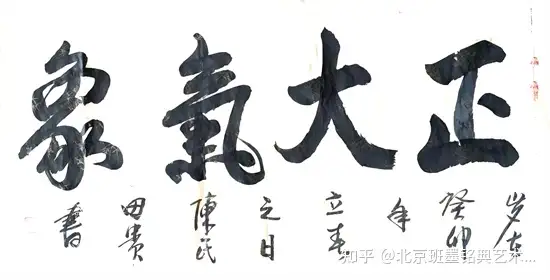 正大氣象
岁在癸卯年立春之日陳氏田贵書
知乎 @北京班墨铭典艺术...